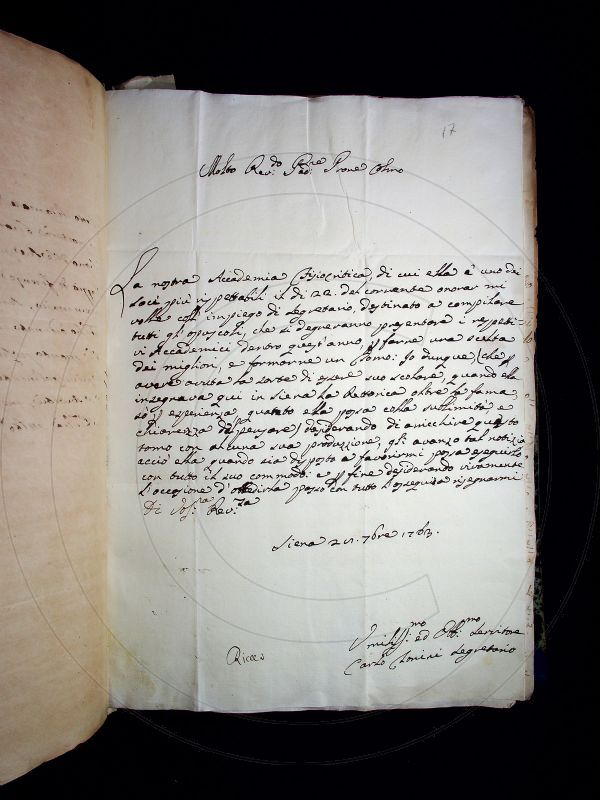 17
Molto Rev.do Pad.re Prone Colmo
La nostra Accademia Fisiocritica, di cui ella è uno dei
Soci più rispettabili il dì 22. del corrente onorar mi
volle coll'impiego di Segretario, destinato a compilare
tutti gl'opuscoli, che si degneranno presentare i rispetti-
vi Accademici dentro quest'anno, p farne una scelta
dei migliori, e formarne un Tomo: Io dunque (che p
avere avuta la sorte di essere suo scolare, quando ella
insegnava qui in Siena la Rettorica oltre la fama,
so p esperienza, quanto ella possa colla sublimità e
chiarezza del pensare) desiderando di arricchir questo
tomo con alcuna sua produzzione, gli avanzo tal notizia
acciò ella quando sia disposto a favorirmi possa eseguirlo
con tutto il suo commodo: e p fine desiderando vivamente
l'occasione d'obbedirla passo con tutto l'ossequio a risegnarmi
Di Vos.ra Rev.za
Siena 25. 7bre 1763.
Umiliss.mo ed Obb.mo Servitore
Riccò
Carlo Segretario